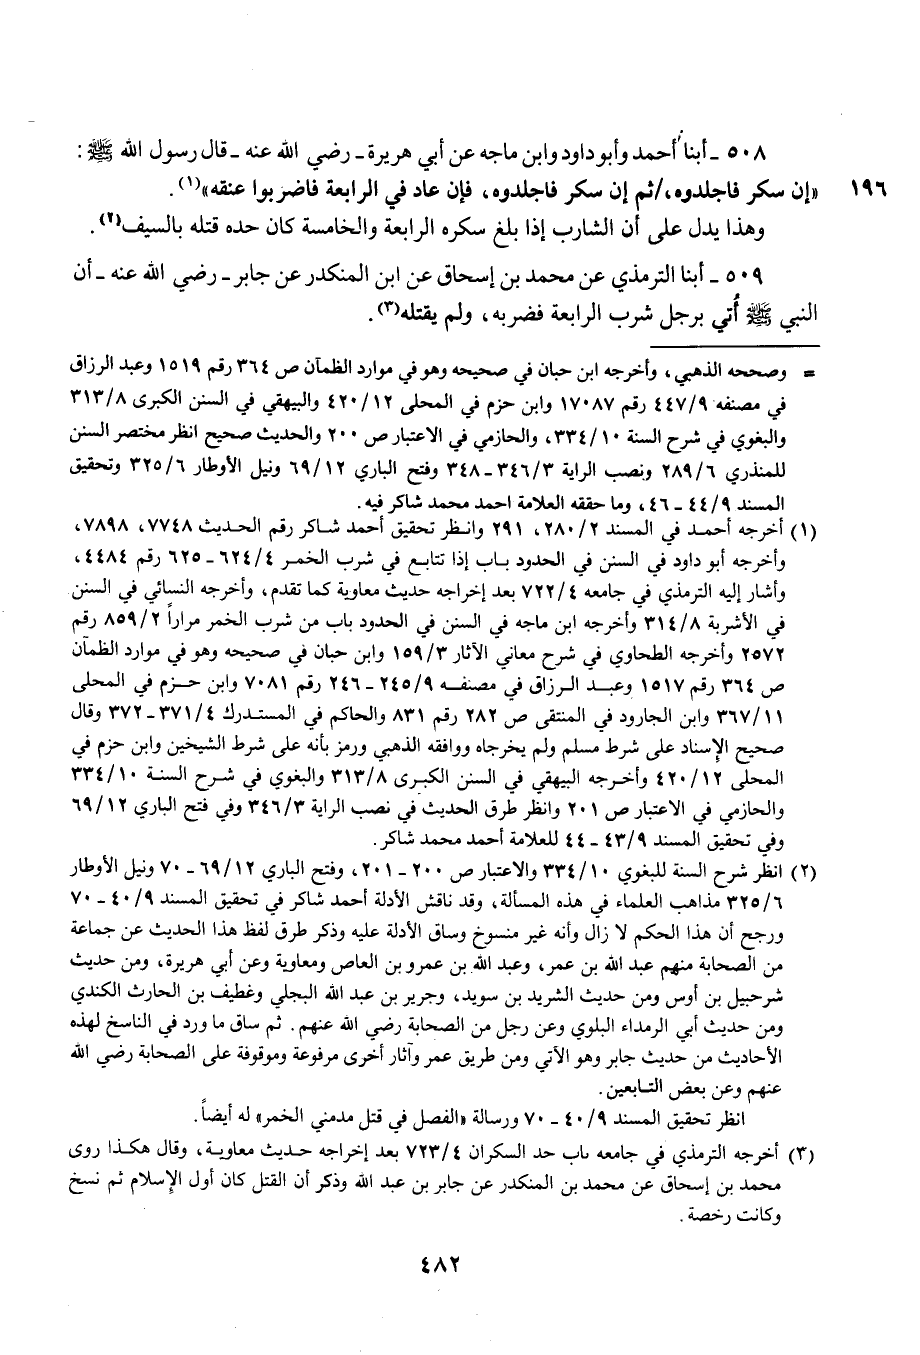 ٥٠٨ ـ أبنا أحمد وأبو داود وابن ماجه عن أبي هريرة ـ رضي الله عنه ـ قال رسول الله ﷺ :
١٩٦ «إن سكر فاجلدوه،/ثم إن سكر فاجلدوه، فإن عاد في الرابعة فاضربوا عنقه»(١).
وهذا يدل على أن الشارب إذا بلغ سكره الرابعة والخامسة كان حده قتله بالسيف(٢).
٥٠٩ ـ أبنا الترمذي عن محمد بن إسحاق عن ابن المنكدر عن جابر ـ رضي الله عنه ـ أن
النبي ﷺ أُتي برجل شرب الرابعة فضربه، ولم يقتله(٣).
= وصححه الذهبي، وأخرجه ابن حبان في صحيحه وهو في موارد الظمآن ص ٣٦٤ رقم ١٥١٩ وعبد الرزاق
في مصنفه ٤٤٧/٩ رقم ١٧٠٨٧ وابن حزم في المحلى ٤٢٠/١٢ والبيهقي في السنن الكبرى ٣١٣/٨
والبغوي في شرح السنة ٣٣٤/١٠، والحازمي في الاعتبار ص ٢٠٠ والحديث صحيح انظر مختصر السنن
للمنذري ٢٨٩/٦ ونصب الراية ٣٤٦/٣ ـ ٣٤٨ وفتح الباري ٦٩/١٢ ونيل الأوطار ٣٢٥/٦ وتحقيق
المسند ٤٤/٩ ـ ٤٦، وما حققه العلامة احمد محمد شاكر فيه.
(١) أخرجه أحمـد في المسند ٢٨٠/٢، ٢٩١ وانـظر تحقيق أحمد شـاكر رقم الحـديث ٧٧٤٨، ٧٨٩٨،
وأخرجه أبو داود في السنن في الحدود بـاب إذا تتابـع في شرب الخمـر ٦٢٤/٤ ـ ٦٢٥ رقم ٤٤٨٤،
وأشار إليه الترمذي في جامعه ٧٢٢/٤ بعد إخراجه حديث معاوية كما تقدم، وأخرجه النسائي في السنن
في الأشربة ٣١٤/٨ وأخرجه ابن ماجه في السنن في الحدود باب من شرب الخمر مراراً ٨٥٩/٢ رقم
٢٥٧٢ وأخرجه الطحاوي في شرح معاني الآثار ١٥٩/٣ وابن حبان في صحيحه وهو في موارد الظمآن
ص ٣٦٤ رقم ١٥١٧ وعبـد الـرزاق في مصنفـه ٢٤٥/٩ ـ ٢٤٦ رقم ٧٠٨١ وابن حـزم في المحلى
٣٦٧/١١ وابن الجارود في المنتقى ص ٢٨٢ رقم ٨٣١ والحاكم في المستـدرك ٣٧١/٤ ـ ٣٧٢ وقال
صحيح الإسناد على شرط مسلم ولم يخرجاه ووافقه الذهبي ورمز بأنه على شرط الشيخين وابن حزم في
المحلى ٤٢٠/١٢ وأخـرجه البيهقي في السنن الكبـرى ٣١٣/٨ والبغوي في شـرح السنـة ٣٣٤/١٠
والحازمي في الاعتبار ص ٢٠١ وانظر طرق الحديث في نصب الراية ٣٤٦/٣ وفي فتح الباري ٦٩/١٢
وفي تحقيق المسند ٤٣/٩ ـ ٤٤ للعلامة أحمد محمد شاكر.
(٢) انظر شرح السنة للبغوي ٣٣٤/١٠ والاعتبار ص ٢٠٠ ـ ٢٠١، وفتح الباري ٦٩/١٢ ـ ٧٠ ونيل الأوطار
٣٢٥/٦ مذاهب العلماء في هذه المسألة، وقد ناقش الأدلة أحمد شاكر في تحقيق المسند ٤٠/٩ ـ ٧٠
ورجح أن هذا الحكم لا زال وأنه غير منسوخ وساق الأدلة عليه وذكر طرق لفظ هذا الحديث عن جماعة
من الصحابة منهم عبد الله بن عمر، وعبد الله بن عمرو بن العاص ومعاوية وعن أبي هريرة، ومن حديث
شرحبيل بن أوس ومن حديث الشريد بن سويد، وجرير بن عبد الله البجلي وغطيف بن الحارث الكندي
ومن حديث أبي الرمداء البلوي وعن رجل من الصحابة رضي الله عنهم. ثم ساق ما ورد في الناسخ لهذه
الأحاديث من حديث جابر وهو الآتي ومن طريق عمر وآثار أخرى مرفوعة وموقوفة على الصحابة رضي الله
عنهم وعن بعض التـابعين.
انظر تحقيق المسند ٤٠/٩ ـ ٧٠ ورسالة «الفصل في قتل مدمني الخمر» له أيضاً.
(٣) أخرجه الترمذي في جامعه باب حد السكران ٧٢٣/٤ بعد إخراجه حـديث معاويـة، وقال هكـذا روى
محمد بن إسحاق عن محمد بن المنكدر عن جابر بن عبد الله وذكر أن القتل كان أول الإسلام ثم نسخ
وكانت رخصة.
٤٨٢